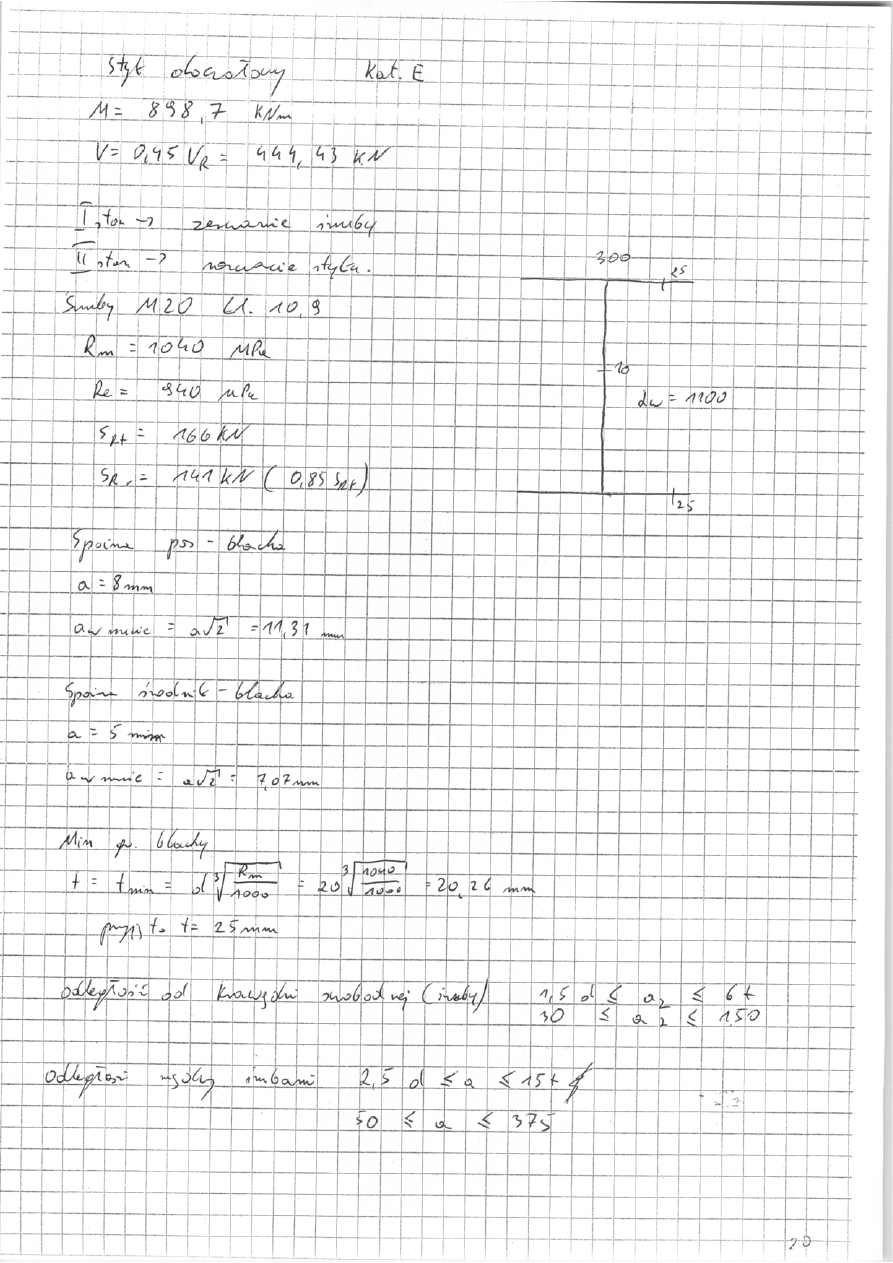 Styk doczołowy Kat. E
M = 898,7 kNm
V = 0,45 V_R = 444,43 kN
I stan → zerwanie śruby
II stan → rozwarcie styku.
300
25
10
dw = 1100
25
Śruby M20 kl. 10,9
Rm = 1040 MPa
Re = 940 MPa
S_Rt = 166 kN
S_Rr = 141 kN (0,85 S_Rt)
Spoina pas - blacha
a = 8 mm
a√2 = 11,31 mm
Spoina środnik - blacha
a = 5 mm
a√2 = 7,07 mm
Min gr. blachy
t = t min = d ∛(Rm/1000) = 20 ∛(1040/1000) = 20,26 mm
przyjęto t = 25 mm
odległość od krawędzi swobodnej (śruby) 1,5 d ≤ a₂ ≤ 6t
30 ≤ a₂ ≤ 150
Odległość między śrubami 2,5 d ≤ a ≤ 15t
50 ≤ a ≤ 375